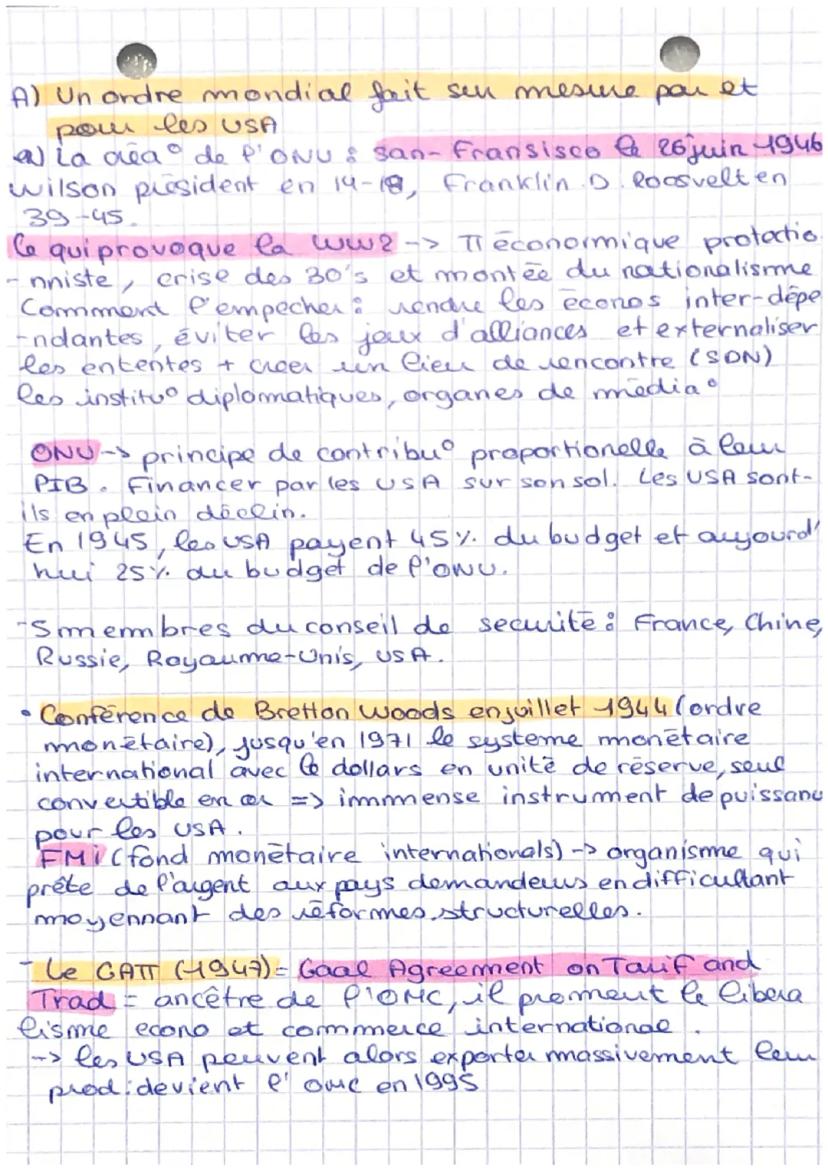 A) Un ordre mondial fait sur mesure par et
pour les USA
a) La créa° de l'ONU : San-Fransisco le 26 juin 1946
Wilson président en 14-18, Franklin D. Roosvelt en
39-45.
Ce qui provoque la WW2 -> π économique protectio
-nniste, crise des 30's et montée du nationalisme
Comment l'empecher : rendre les éconos inter-dépe
-ndantes, éviter les jeux d'alliances et externaliser
les ententes + creer un lieu de rencontre (SDN)
les institu° diplomatiques, organes de média°
ONU -> principe de contribu° proportionelle à leur
PIB. Financer par les USA sur son sol. Les USA sont-
ils en plein déclin.
En 1945, les USA payent 45% du budget et aujourd'
hui 25% du budget de l'ONU.
-5 membres du conseil de securité : France, Chine,
Russie, Royaume-Unis, USA.
• Conférence de Bretton Woods en juillet 1944 (ordre
monétaire), jusqu'en 1971 le systeme monétaire
international avec le dollars en unité de réserve, seul
convertible en or => immense instrument de puissanc
pour les USA.
FMi (fond monétaire internationals) -> organisme qui
prête de l'argent aux pays demandeurs en difficultant
moyennant des réformes structurelles.
- Le GATT (1947) = Gaal Agreement on Tarif and
Trad = ancêtre de l'OMC, il prement le libera
lisme econo et commerce international.
-> les USA peuvent alors exporter massivement leur
prod : devient l'omc en 1995